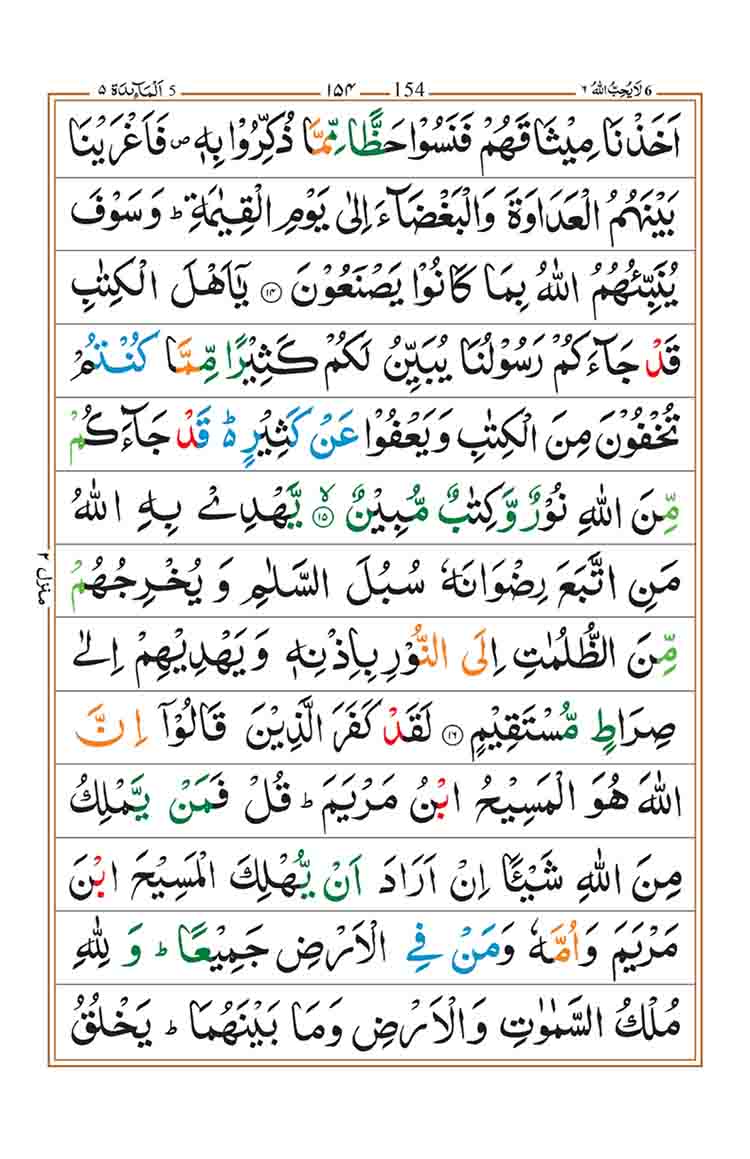 6 لَا یُحِبُّ اللّٰهُ ٦ 154 ۱۵۴ 5 اَلْمَآئِدَة ۵
اَخَذْنَا مِیْثَاقَهُمْ فَنَسُوْا حَظًّا مِّمَّا ذُكِّرُوْا بِهٖ ۪ فَاَغْرَیْنَا
بَیْنَهُمُ الْعَدَاوَةَ وَالْبَغْضَآءَ اِلٰی یَوْمِ الْقِیٰمَةِ ؕ وَسَوْفَ
یُنَبِّئُهُمُ اللّٰهُ بِمَا كَانُوْا یَصْنَعُوْنَ ﴿۱۴﴾ یٰۤاَهْلَ الْكِتٰبِ
قَدْ جَآءَكُمْ رَسُوْلُنَا یُبَیِّنُ لَكُمْ كَثِیْرًا مِّمَّا كُنْتُمْ
تُخْفُوْنَ مِنَ الْكِتٰبِ وَیَعْفُوْا عَنْ كَثِیْرٍ ؕ۬ قَدْ جَآءَكُمْ
مِّنَ اللّٰهِ نُوْرٌ وَّكِتٰبٌ مُّبِیْنٌ ﴿ۙ۱۵﴾ یَّهْدِیْ بِهِ اللّٰهُ
مَنِ اتَّبَعَ رِضْوَانَهٗ سُبُلَ السَّلٰمِ وَیُخْرِجُهُمْ
مِّنَ الظُّلُمٰتِ اِلَی النُّوْرِ بِاِذْنِهٖ وَیَهْدِیْهِمْ اِلٰی
صِرَاطٍ مُّسْتَقِیْمٍ ﴿۱۶﴾ لَقَدْ كَفَرَ الَّذِیْنَ قَالُوْۤا اِنَّ
اللّٰهَ هُوَ الْمَسِیْحُ ابْنُ مَرْیَمَ ؕ قُلْ فَمَنْ یَّمْلِكُ
مِنَ اللّٰهِ شَیْئًا اِنْ اَرَادَ اَنْ یُّهْلِكَ الْمَسِیْحَ ابْنَ
مَرْیَمَ وَاُمَّهٗ وَمَنْ فِی الْاَرْضِ جَمِیْعًا ؕ وَلِلّٰهِ
مُلْكُ السَّمٰوٰتِ وَالْاَرْضِ وَمَا بَیْنَهُمَا ؕ یَخْلُقُ
منزل ۲